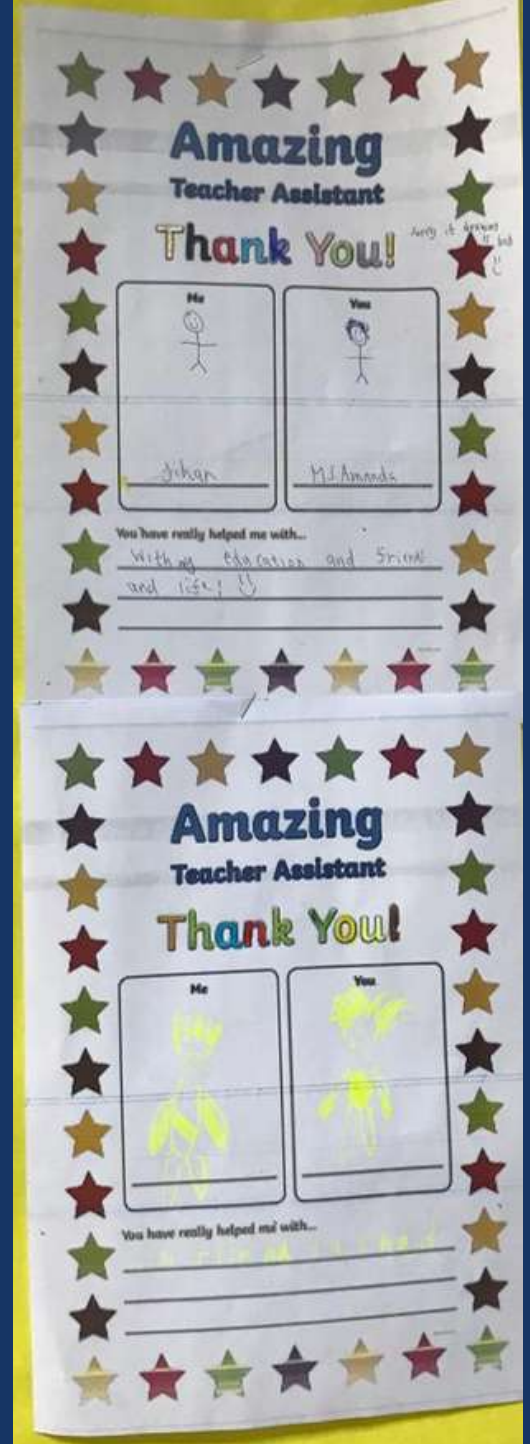 Amazing
Teacher Assistant
Thank You!
Sorry it
bad
Me
You
Jihan
MS.Amanda
You have really helped me with...
with my education and friend
and life! :)
Amazing
Teacher Assistant
Thank You!
Me
You
You have really helped me with...